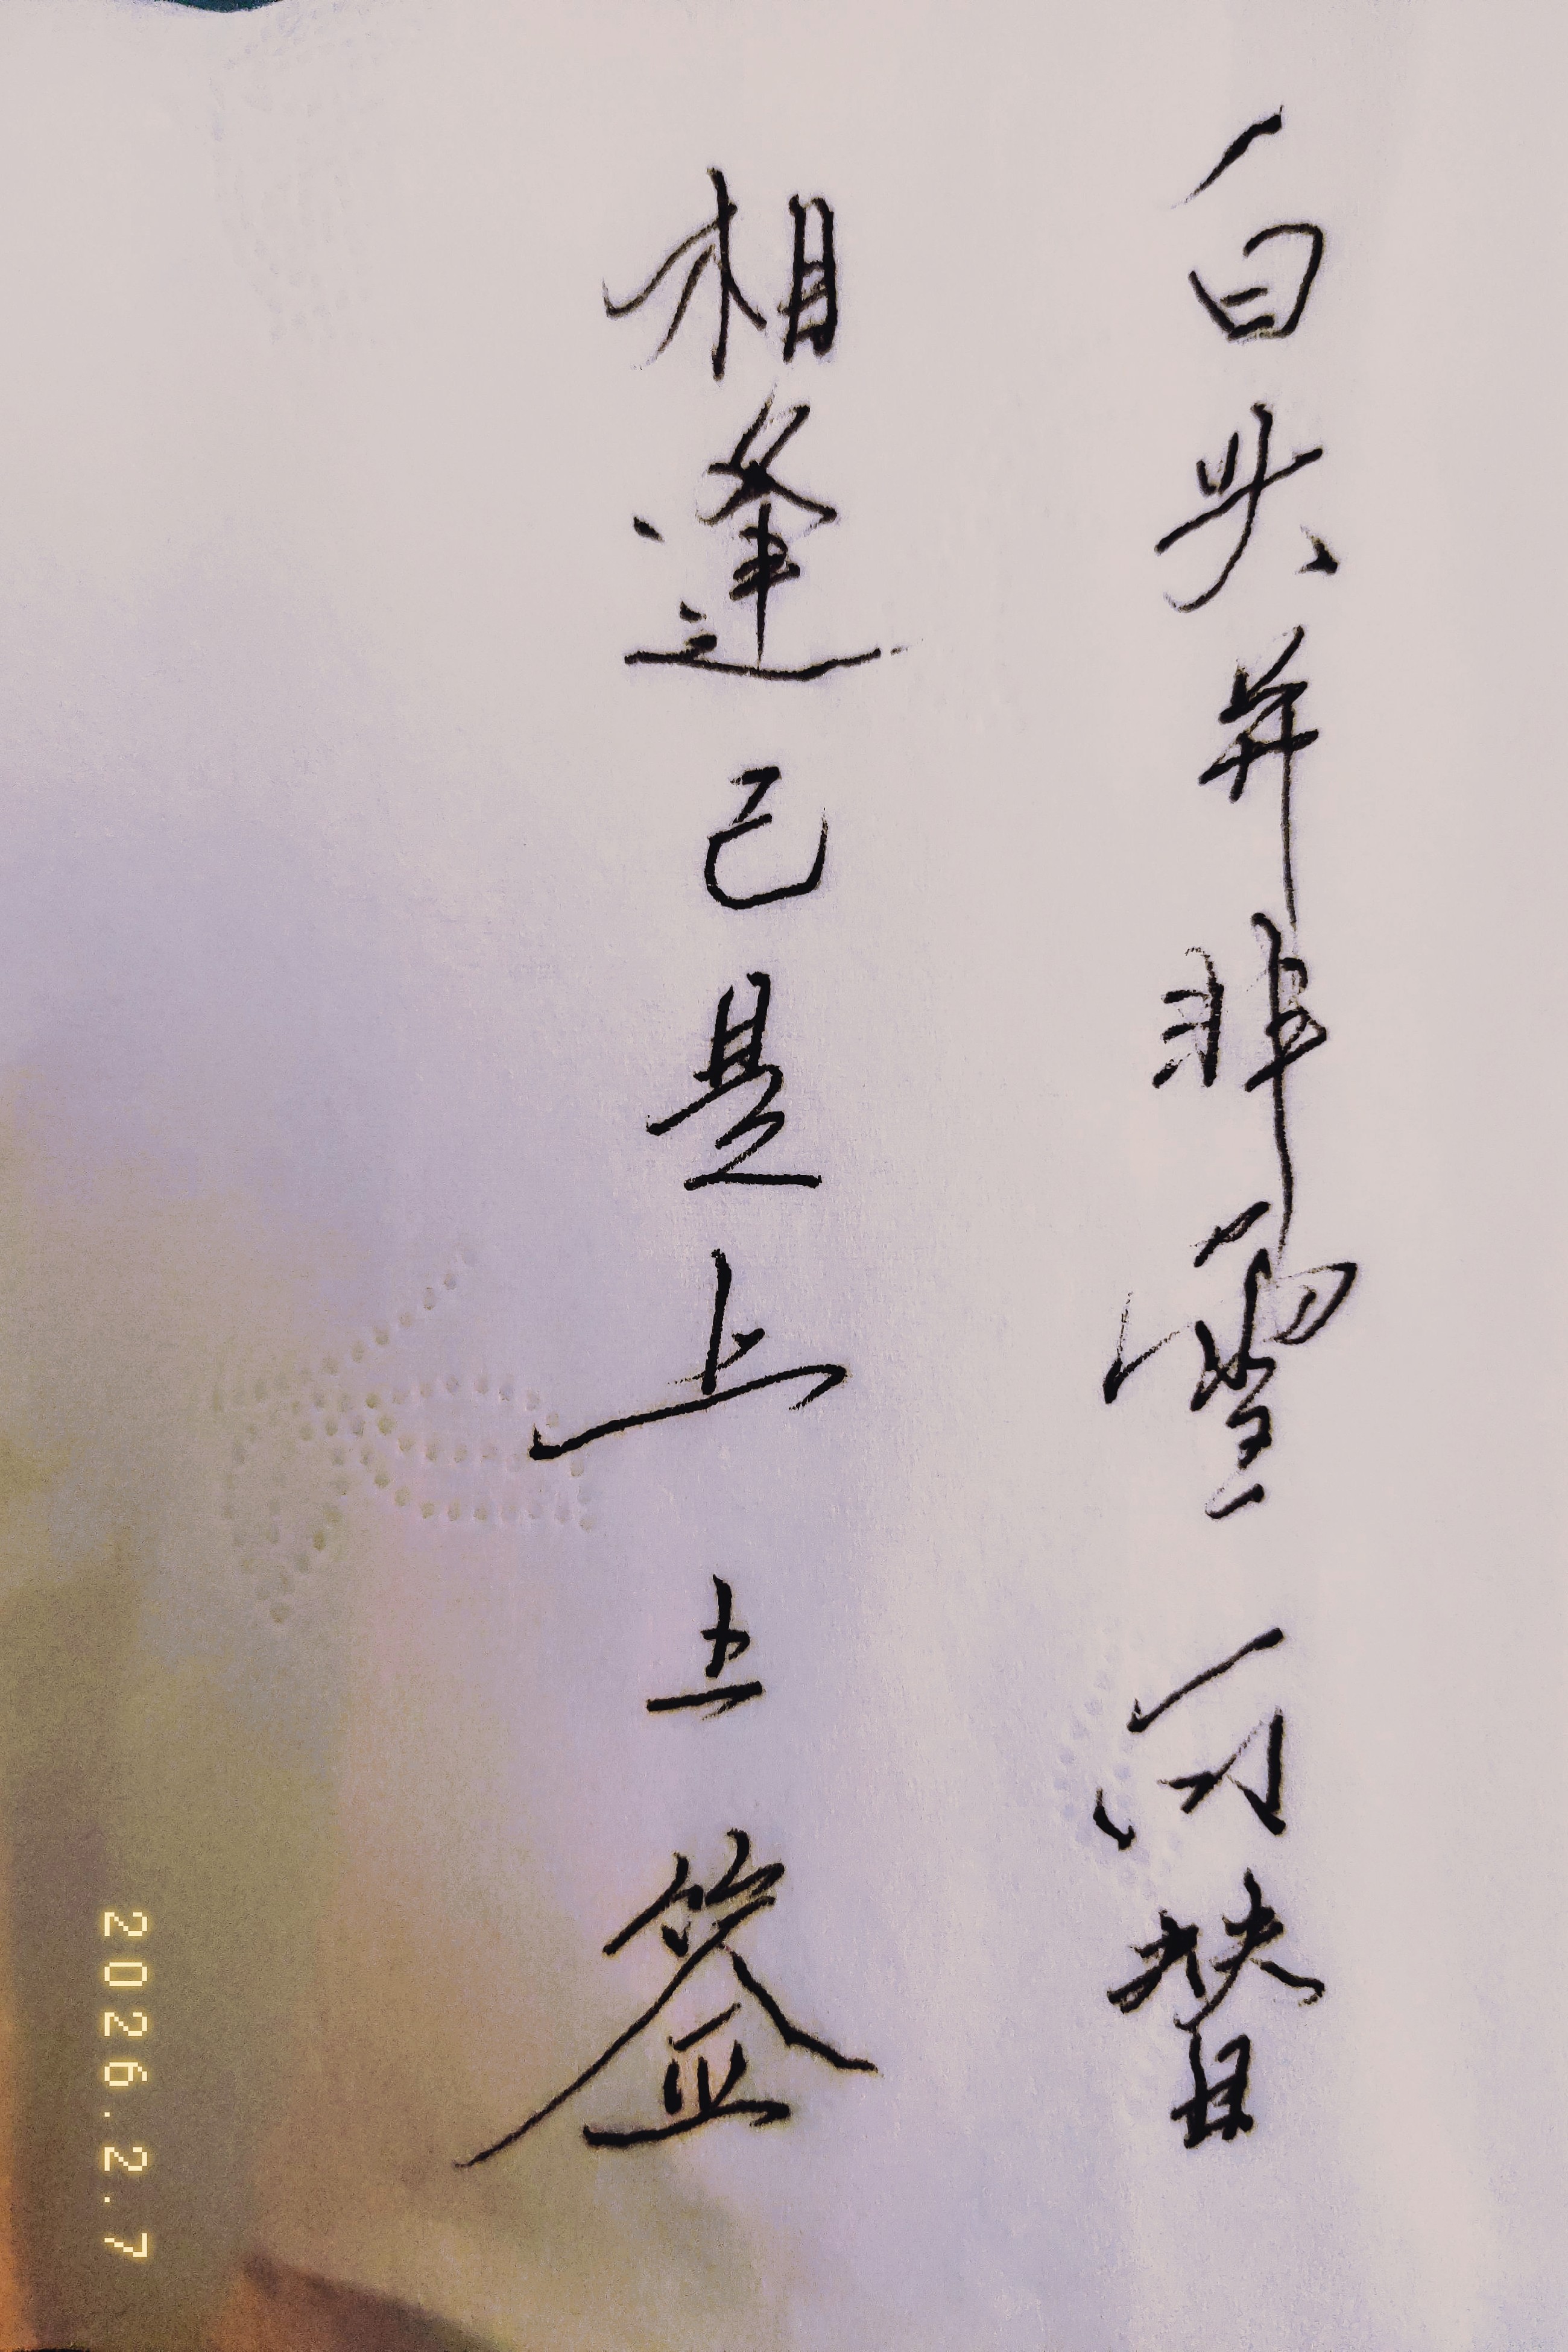 白头并非雪可替
相逢已是上上签
2026.2.7